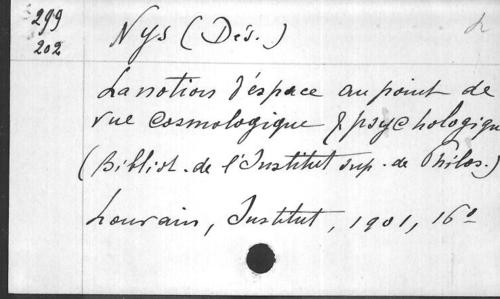 299
202
Nys (Dés.)
La notion d'espace au point de
vue cosmologique & psychologique
(Bibliot. de l'Institut sup. de Philos.)
Louvain, Institut, 1901, 16º